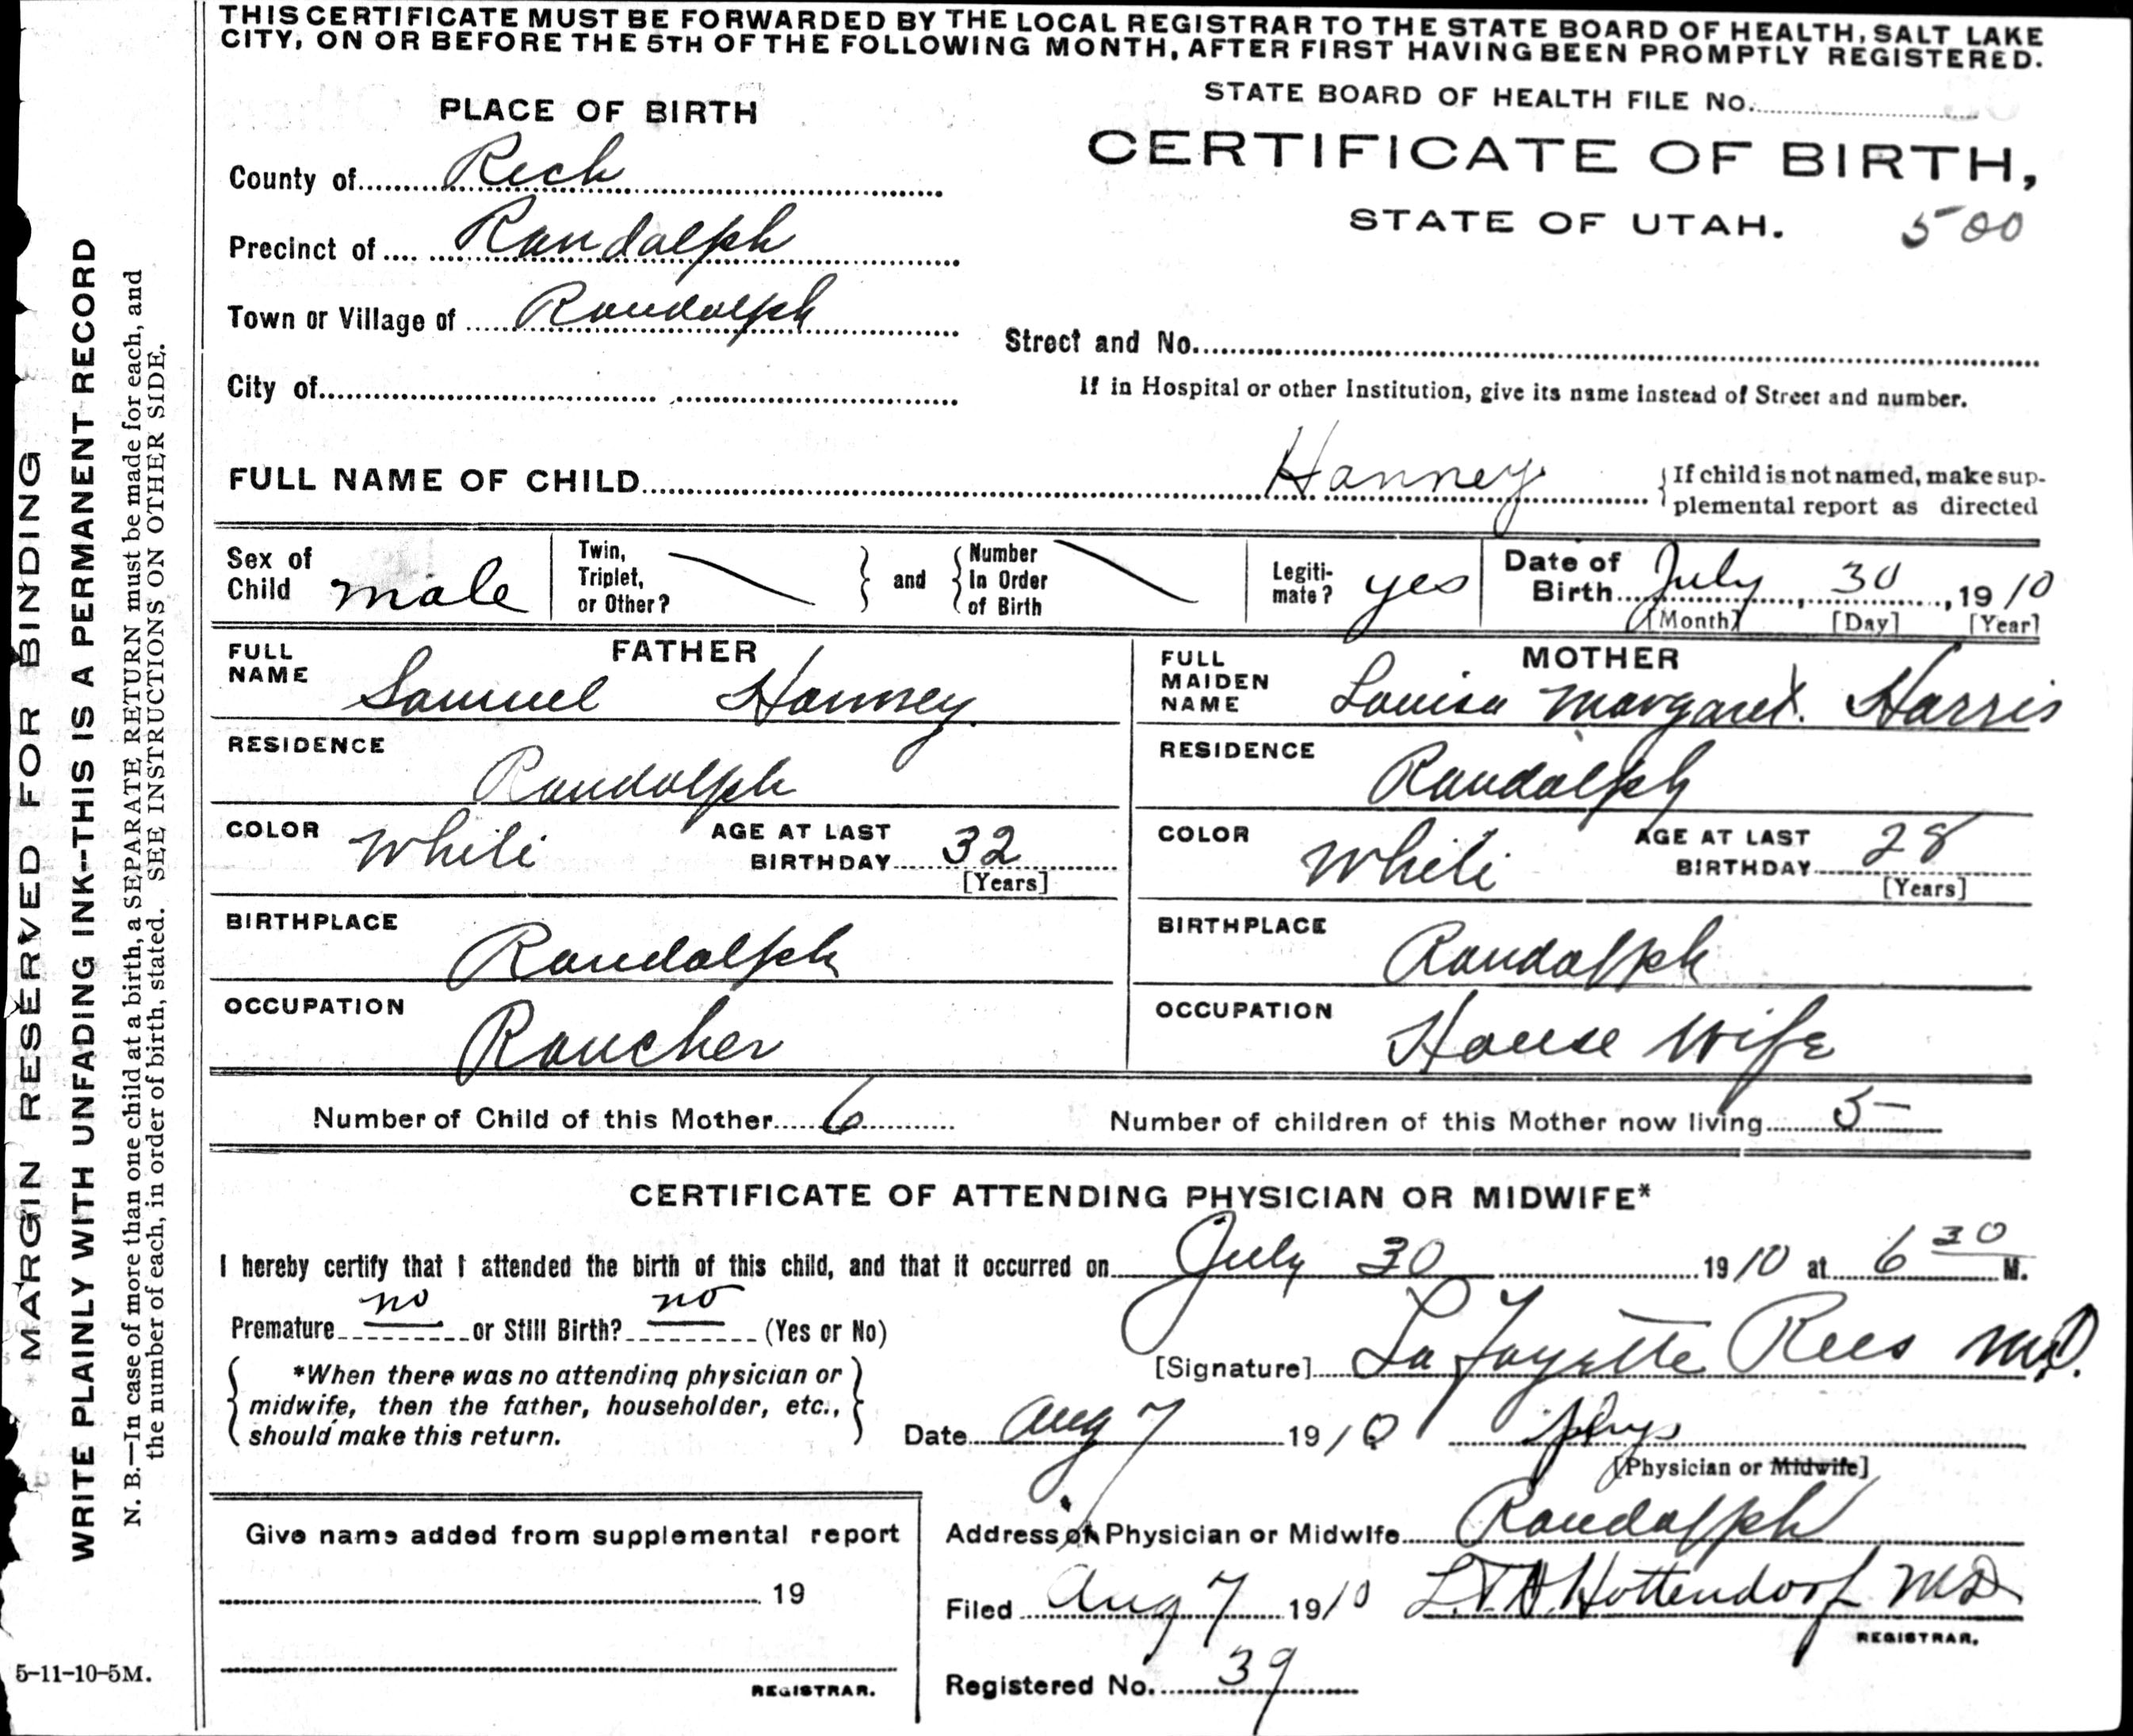 THIS CERTIFICATE MUST BE FORWARDED BY THE LOCAL REGISTRAR TO THE STATE BOARD OF HEALTH, SALT LAKE
CITY, ON OR BEFORE THE 5TH OF THE FOLLOWING MONTH, AFTER FIRST HAVING BEEN PROMPTLY REGISTERED.
STATE BOARD OF HEALTH FILE No.
PLACE OF BIRTH
CERTIFICATE OF BIRTH,
STATE OF UTAH. 500
County of Rich
Precinct of Randolph
Town or Village of Randolph
Street and No.
City of
If in Hospital or other Institution, give its name instead of Street and number.
FULL NAME OF CHILD Hanney
If child is not named, make sup-
plemental report as directed
Sex of Child male
Twin, Triplet, or Other?
and
Number In Order of Birth
Legiti-mate? yes
Date of Birth July, 30, 1910
[Month] [Day] [Year]
FATHER
FULL NAME Samuel Hanney
RESIDENCE
Randolph
COLOR White AGE AT LAST BIRTHDAY 32
[Years]
BIRTHPLACE
Randolph
OCCUPATION
Rancher
MOTHER
FULL MAIDEN NAME Louisa Margaret Harris
RESIDENCE
Randolph
COLOR White AGE AT LAST BIRTHDAY 28
[Years]
BIRTHPLACE
Randolph
OCCUPATION
House Wife
Number of Child of this Mother 6 Number of children of this Mother now living 5
CERTIFICATE OF ATTENDING PHYSICIAN OR MIDWIFE*
I hereby certify that I attended the birth of this child, and that it occurred on July 30 1910 at 6 30 M.
Premature no or Still Birth? no (Yes or No)
*When there was no attending physician or
midwife, then the father, householder, etc.,
should make this return.
[Signature] La Fayette Rees M.D.
Date Aug 7 1910 phys
[Physician or Midwife]
Address of Physician or Midwife Randolph
Filed Aug 7 1910 L.T.H. Hottendorf MD
REGISTRAR.
Registered No. 39
Give name added from supplemental report
19
REGISTRAR.
MARGIN RESERVED FOR BINDING
WRITE PLAINLY WITH UNFADING INK--THIS IS A PERMANENT RECORD
N. B.—In case of more than one child at a birth, a SEPARATE RETURN must be made for each, and
the number of each, in order of birth, stated. SEE INSTRUCTIONS ON OTHER SIDE.
5-11-10-5M.